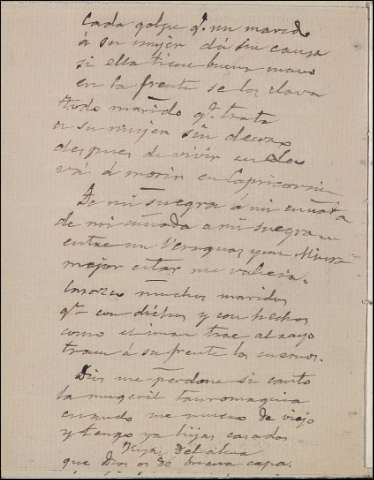 Cada golpe q. un marido
á su mujer dá sin causa
si ella tiene buena mano
en la frente se los clava
Todo marido q. trata
a su mujer sin decoro
despues de vivir en
vá á morir en Capricornio
De mi suegra á mi cuñada
de mi cuñada a mi suegra
entre un Veraguas y un Miura
mejor estar me valiera.
Conozco muchos maridos
q. con dichos y con hechos
como el iman trae al rayo
traen á su frente los cuernos.
Dios me perdone si canto
la mugeril tauromaquia
cuando me muero de viejo
y tengo ya hijas casadas
Hijas del alma
que Dios os dé buena capa.